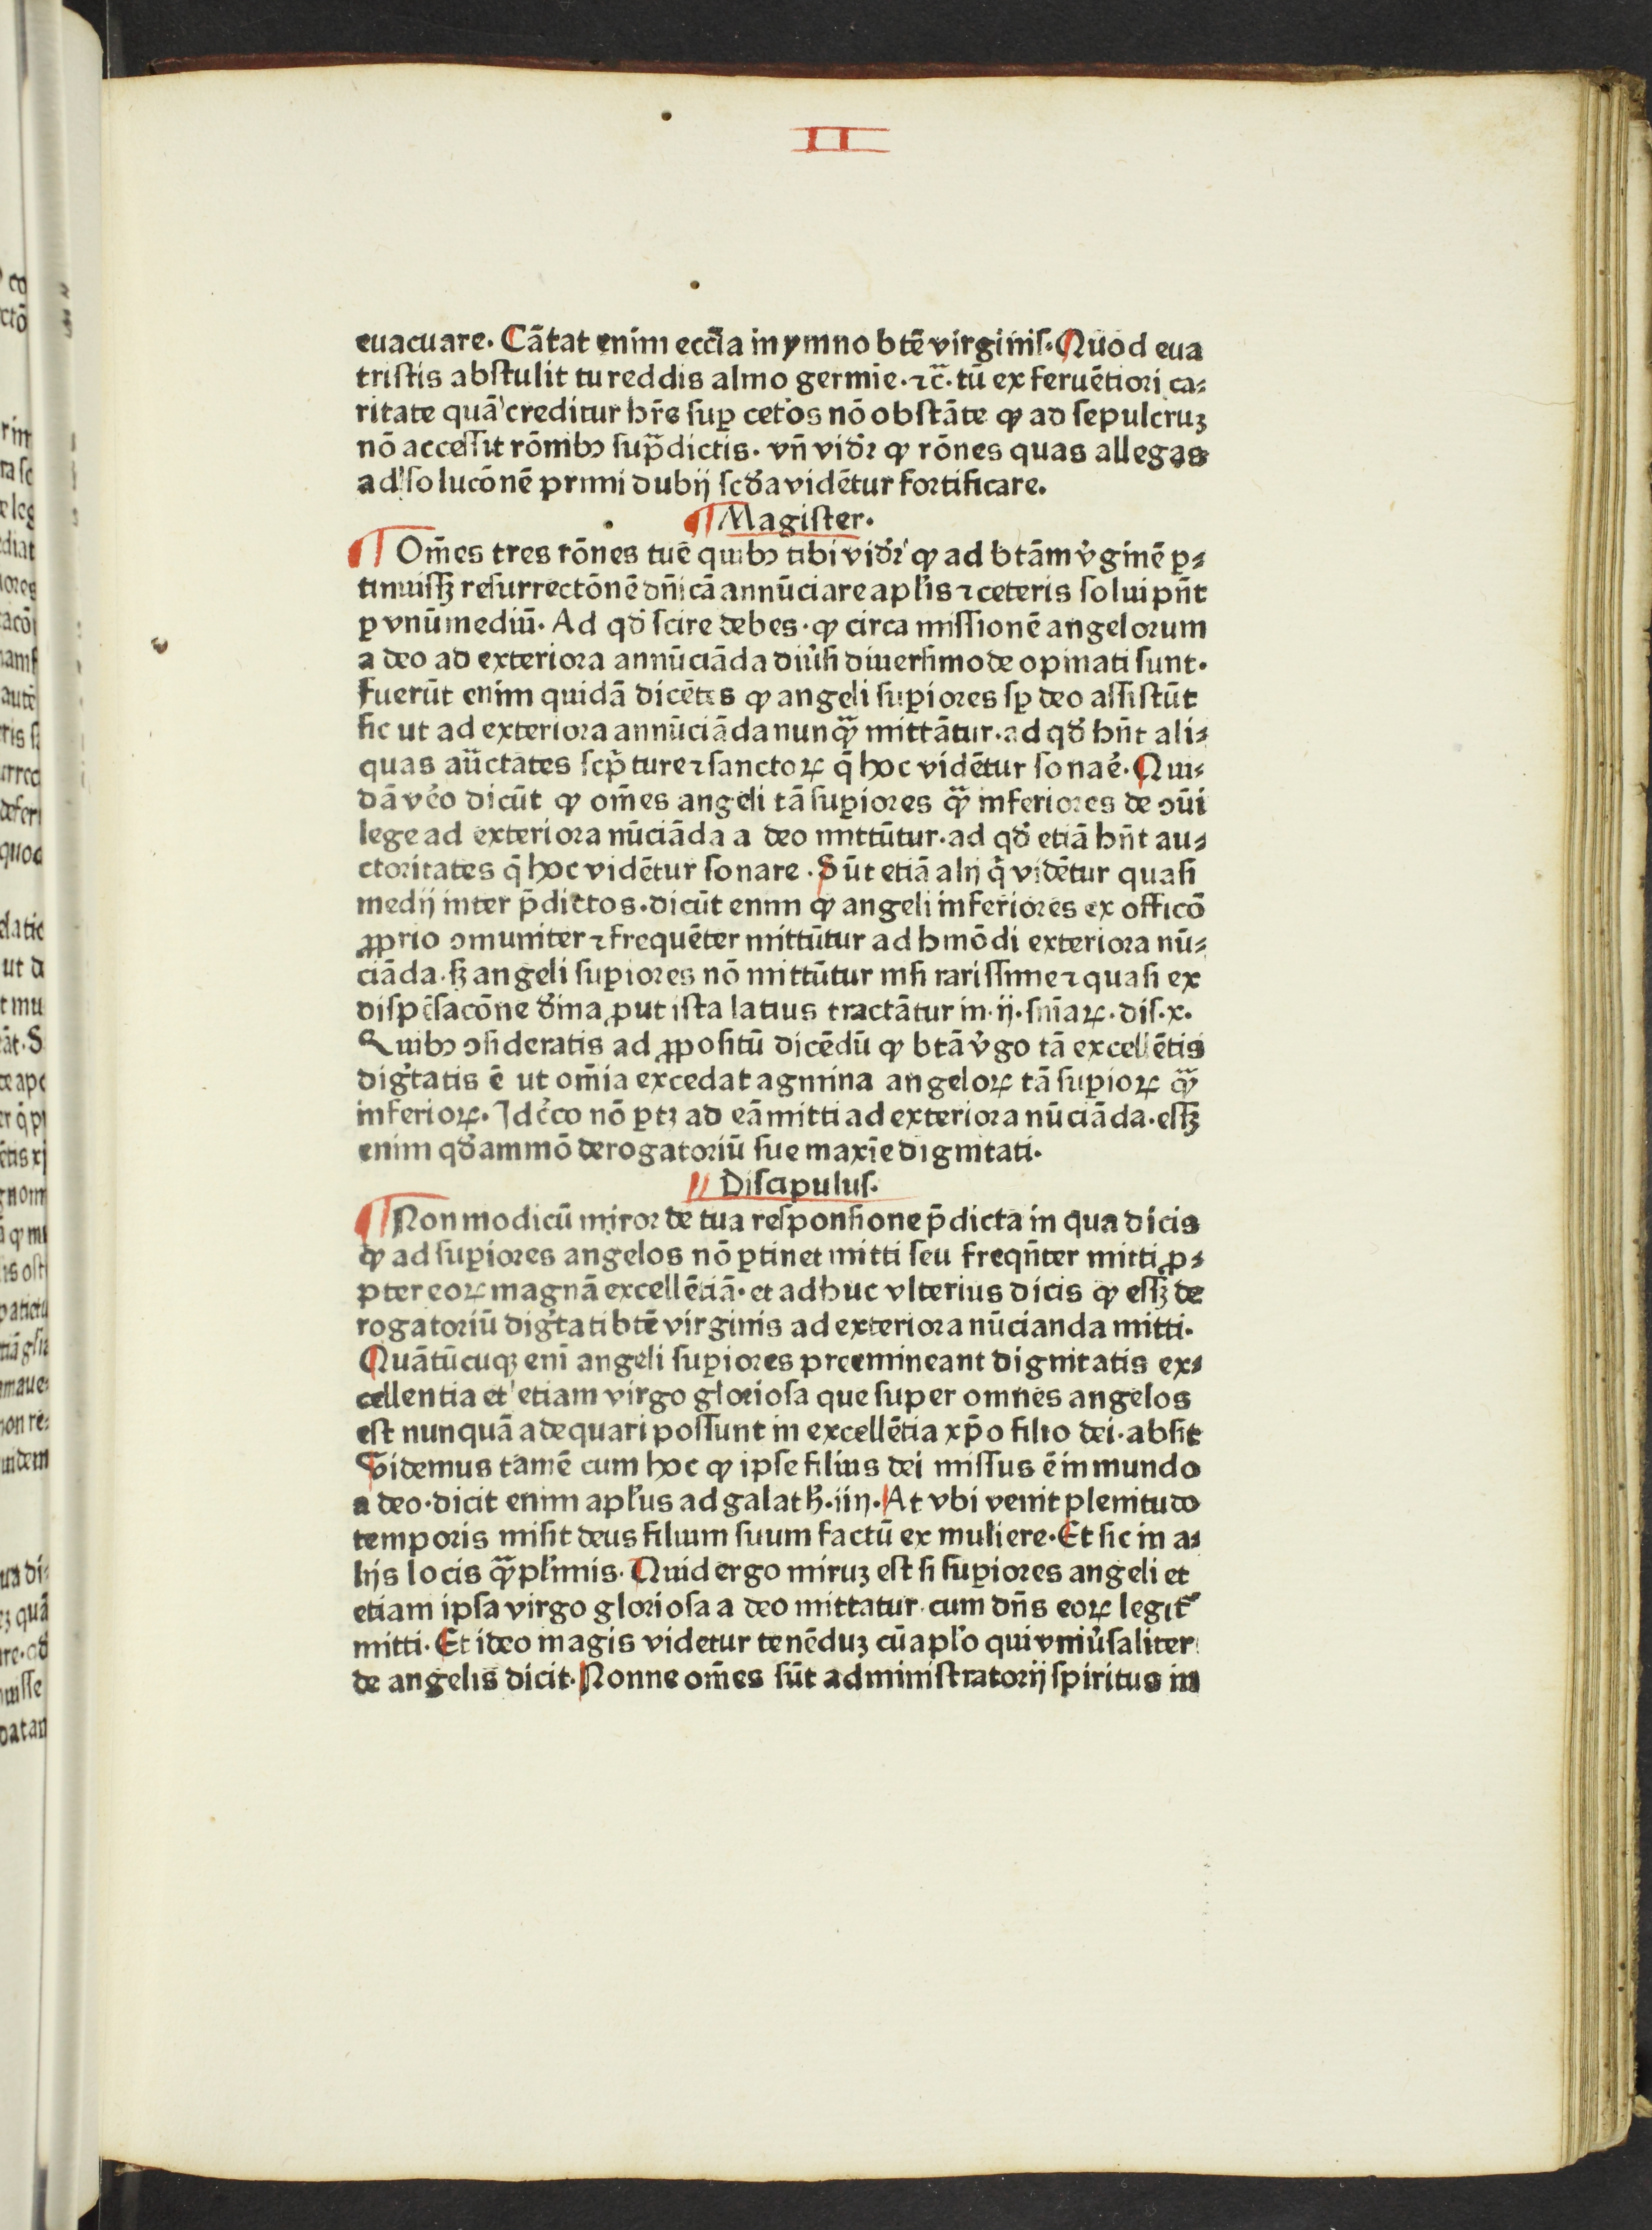 II
euacuare. Cātat enim eccl̄ia in ymno btē virginis. Quod eua
tristis abstulit tu reddis almo germīe. ⁊c̄. tū ex feruētiori ca⸗
ritate quā creditur hr̄e sup̲ cet̓os nō obstāte ꝙ ad sepulcruꝫ
nō accessit rōnibꝫ sup̄dictis. vn̄ vid̓r ꝙ rōnes quas allegas
ad soluc̄onē primi dubij scd̓a vidētur fortificare.
¶ Magister.
¶ Om̄es tres rōnes tue quibꝫ tibi vid̓r ꝙ ad btām v̓ginē ꝑ⸗
tinuissꝫ resurrectōnē dn̄icā annūciare apl̓is ⁊ ceteris solui pn̄t
ꝑ vnū mediū. Ad qd̓ scire debes. ꝙ circa missionē angelorum
a deo ad exteriora annūciāda diu̓si diuersimode opinati sunt.
fuerūt enim quidā dicētes ꝙ angeli suꝑiores sꝑ deo assistūt
sic ut ad exteriora annūciāda nunq̄ mittātur. ad qd̓ hn̄t ali⸗
quas auc̄tates scp̄ture ⁊ sanctoꝝ q̄ hoc vidētur sonar̓e. Qui⸗
dā ve̓o dicūt ꝙ om̄es angeli tā suꝑiores q̄ inferiores de ꝯūi
lege ad exteriora nūciāda a deo mittūtur. ad qd̓ etiā hn̄t au⸗
ctoritates q̄ hoc vidētur sonare. Sūt etiā alij q̄ vidētur quasi
medij inter p̄dictos. dicūt enim ꝙ angeli inferiores ex officō
ꝓprio ꝯmuniter ⁊ frequēter mittūtur ad hmōdi exteriora nū⸗
ciāda. sꝫ angeli suꝑiores nō mittūtur nisi rarissime ⁊ quasi ex
dispēsacōne d̓ina ꝓut ista latius tractātur in. ij. sn̄iaꝝ. dis. x.
Quibꝫ ꝯsideratis ad ꝓpositū dicēdū ꝙ btā v̓go tā excellētis
dig̓tatis ē ut om̄ia excedat agmina angeloꝝ tā suꝑioꝝ q̄
inferioꝝ. Idc̓co nō ꝑtꝫ ad eā mitti ad exteriora nūciāda. essꝫ
enim qd̓ammō derogatoriū sue maxīe dignitati.
Discipulus.
¶ Non modicū miror de tua responsione p̄dicta in qua dicis
ꝙ ad suꝑiores angelos nō ꝑtinet mitti seu freqn̄ter mitti ꝓ⸗
pter eoꝝ magnā excellētiā. et adhuc vlterius dicis ꝙ essꝫ de
rogatoriū dig̓tati btē virginis ad exteriora nūcianda mitti.
Quātūcuqꝫ enī angeli suꝑiores preemineant dignitatis ex⸗
cellentia et etiam virgo gloriosa que super omnes angelos
est nunquā adequari possunt in excellētia xp̄o filio dei. absit
Videmus tamē cum hoc ꝙ ipse filius dei missus ē in mundo
a deo. dicit enim apl̓us ad galath̓. iiij. At vbi venit plenitudo
temporis misit deus filium suum factū ex muliere. Et sic in a⸗
lijs locis q̄pl̓imis. Quid ergo miruꝫ est si suꝑiores angeli et
etiam ipsa virgo gloriosa a deo mittatur. cum dn̄s eoꝝ legit᷑
mitti. Et ideo magis videtur tenēduꝫ cū apl̓o qui vniu̓saliter
de angelis dicit. Nonne om̄es sūt administratorij spiritus in